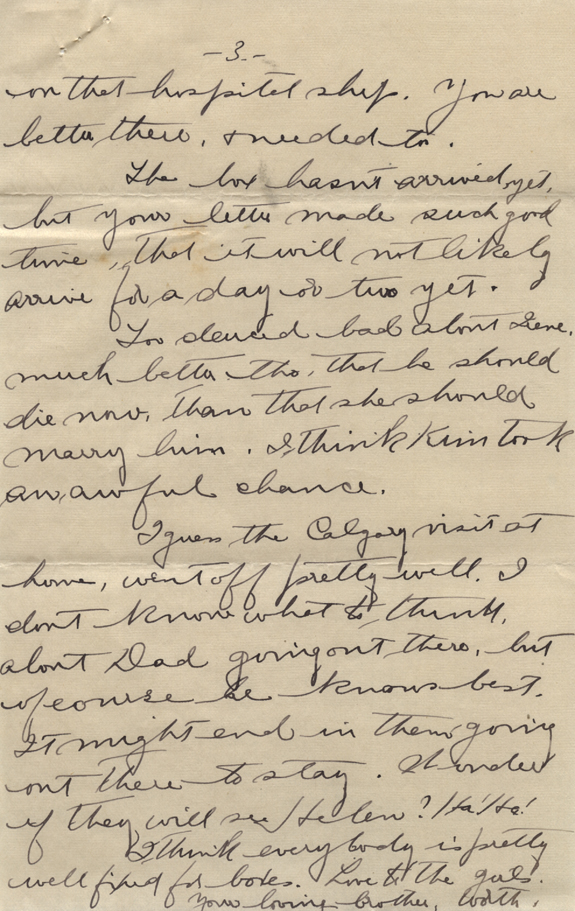 -3.-
on that hospital ship. You are
better there, & needed to.
The box hasn't arrived, yet,
but your letter made such good
time, that it will not likely
arrive for a day or two yet.
Too deuced bad about Irene,
much better tho, that he should
die now, than that she should
marry him. I think Kim took
an awful chance.
I guess the Calgary visit at
home, went off pretty well. I
dont know what to think,
about Dad going out there, but
of course he knows best.
It might end in them going
out there to stay. Wonder
if they will see Helen? Ha! Ha!
I think everybody is pretty
well fixed for boxes. Love to the girls.
Your loving brother, Worth.